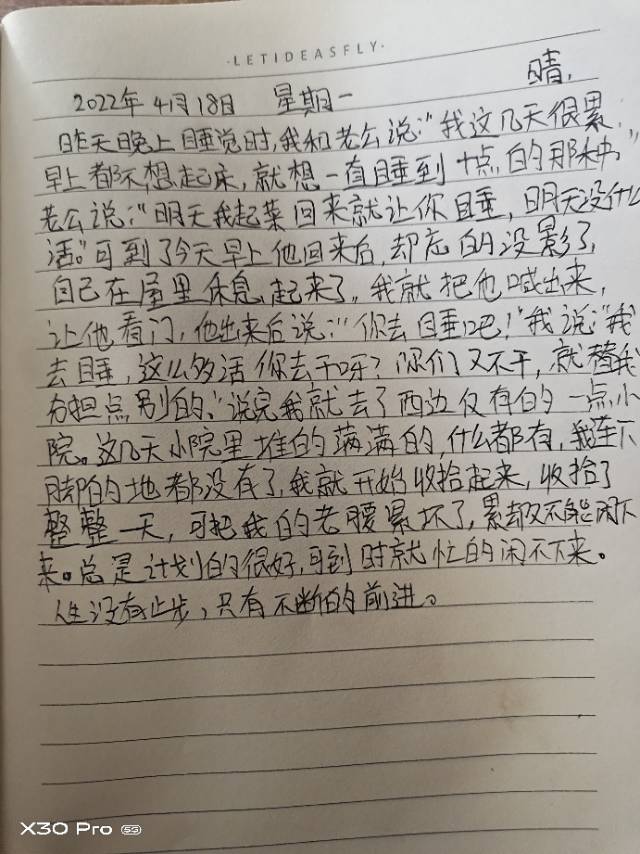 ·LETIDEASFLY·
晴,
2022年4月18日 星期一
昨天晚上睡觉时,我和老公说:"我这几天很累,
早上都不想起床,就想一直睡到十点的那种"
老公说:"明天我起菜回来就让你睡,明天没什么
活。"可到了今天早上他回来后,却忘的没影了,
自己在屋里休息起来了。我就把他喊出来,
让他看门,他出来后说:"你去睡吧!"我说:"我
去睡,这么多活你去干呀?你们又不干,就替我
分担点别的,"说完我就去了西边仅有的一点小
院。这几天小院里堆的满满的,什么都有,我连下
脚的地都没有了,我就开始收拾起来,收拾了
整整一天,可把我的老腰累坏了,累却又不能闲下
来。总是计划的很好,可到时就忙的闲不下来。
人生没有止步,只有不断的前进。
X30 Pro 5G